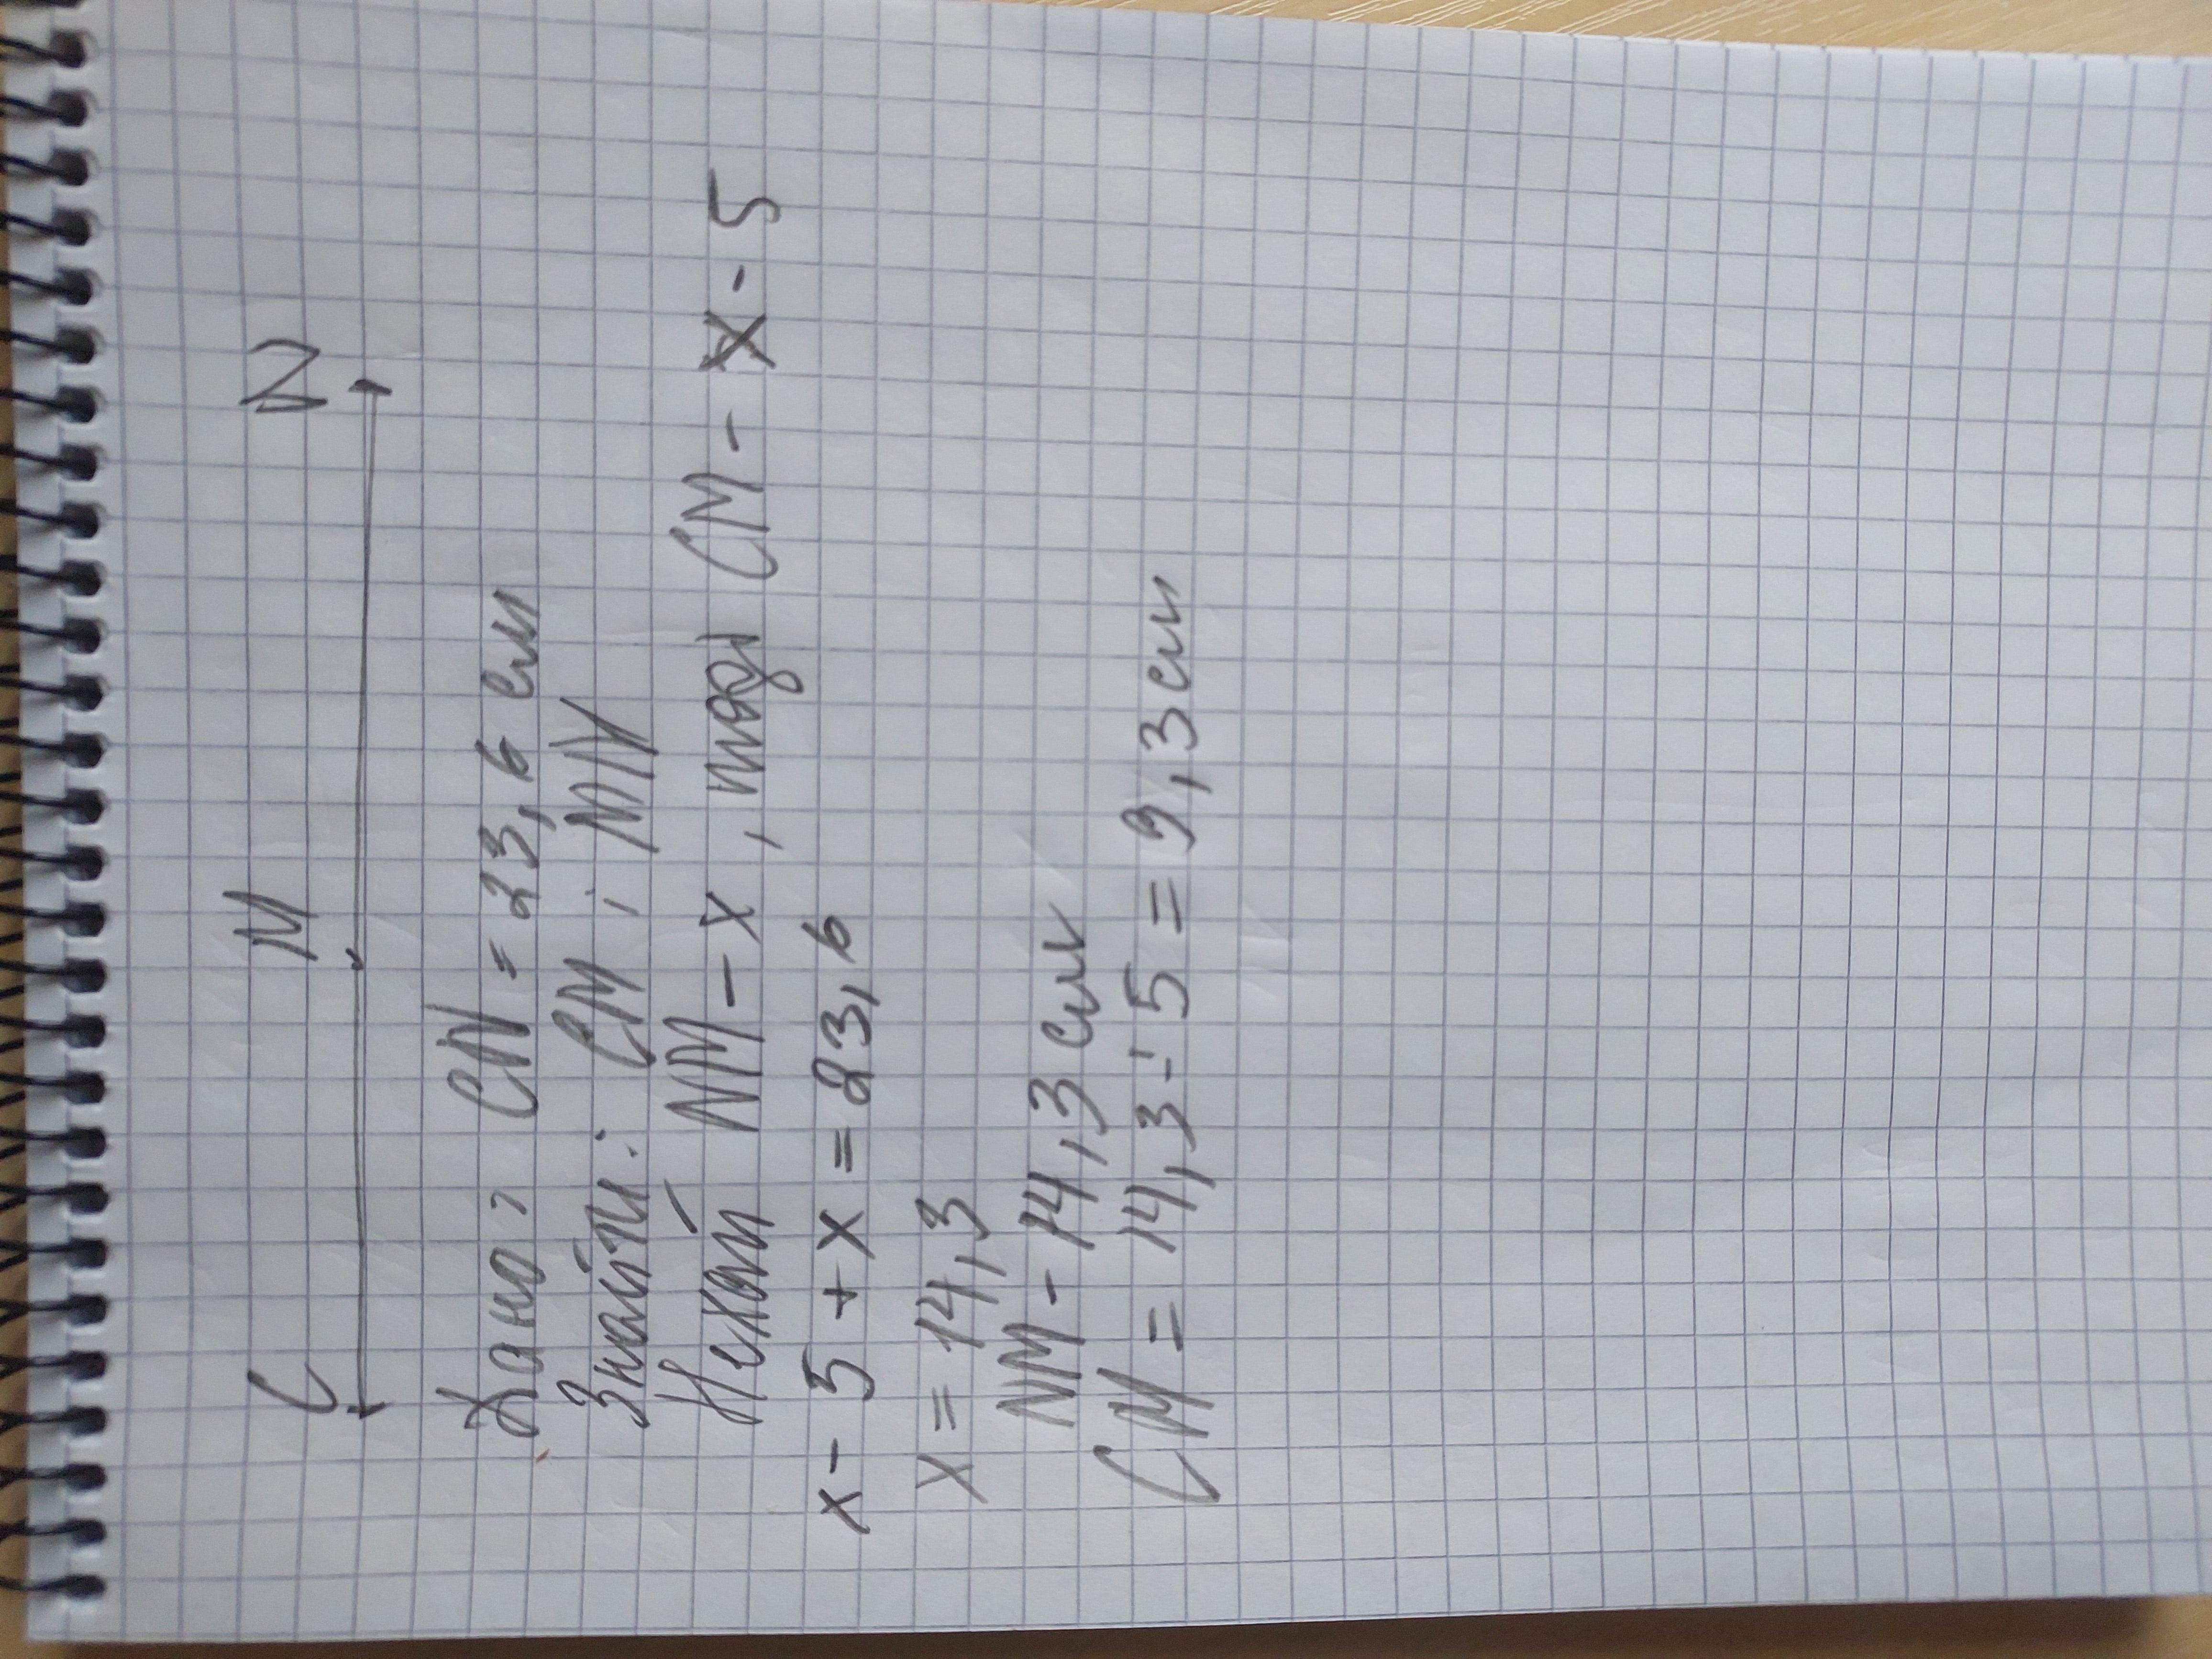 C M N
Дано: CN = 23,6 см
Знайти: CM ; MN
Нехай NM - x, тоді CM - x - 5
x - 5 + x = 23,6
x = 14,3
NM - 14,3 см
CM = 14,3 - 5 = 9,3 см